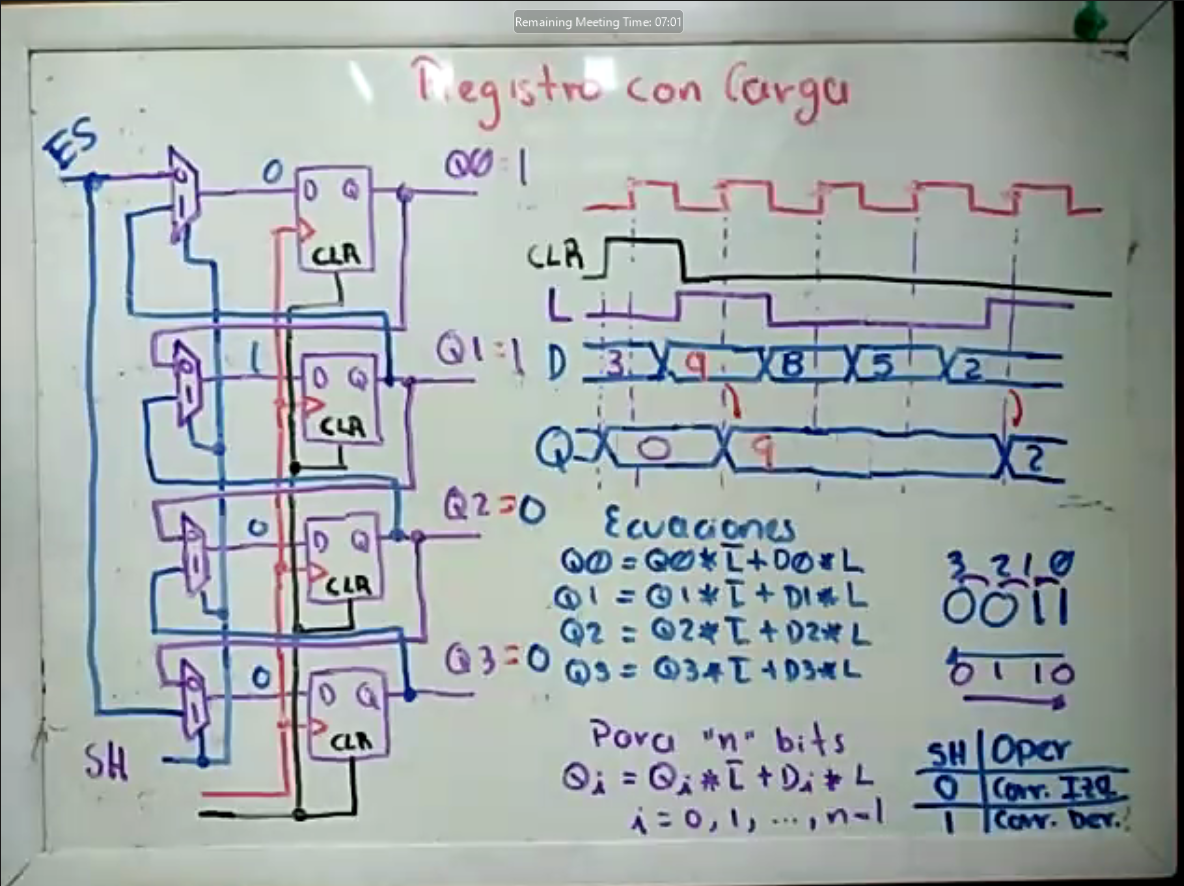 Remaining Meeting Time: 07:01
Registro con Carga
ES
0
1
0
D Q
CLR
Q0=1
0
1
1
D Q
CLR
Q1=1
0
1
0
D Q
CLR
Q2=0
0
1
0
D Q
CLR
Q3=0
SH
CLR
L
D 3 9 8 5 2
Q 0 9 2
Ecuaciones
Q0 = Q0*L̅+D0*L
Q1 = Q1*L̅+D1*L
Q2 = Q2*L̅+D2*L
Q3 = Q3*L̅+D3*L
Para "n" bits
Qi = Qi*L̅+Di*L
i=0,1,...,n-1
3 2 1 0
0011
0110
SH | Oper
0 | Corr. Izq.
1 | Corr. Der.